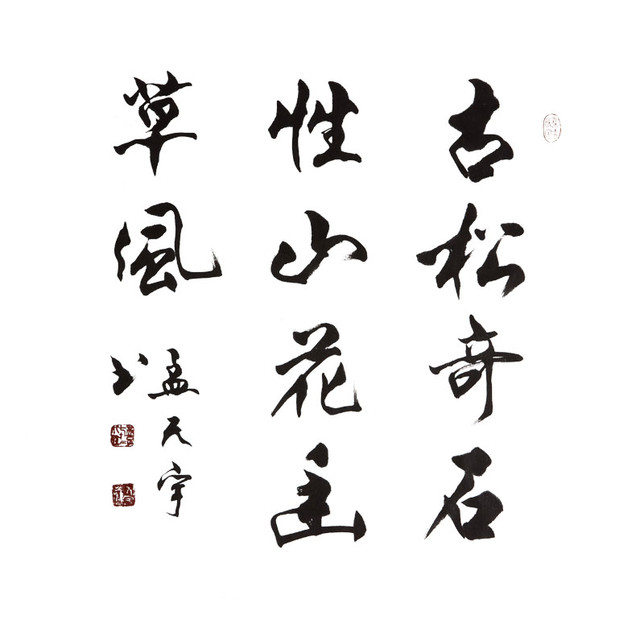 古松奇石
性山花
草風
孟天宇
书